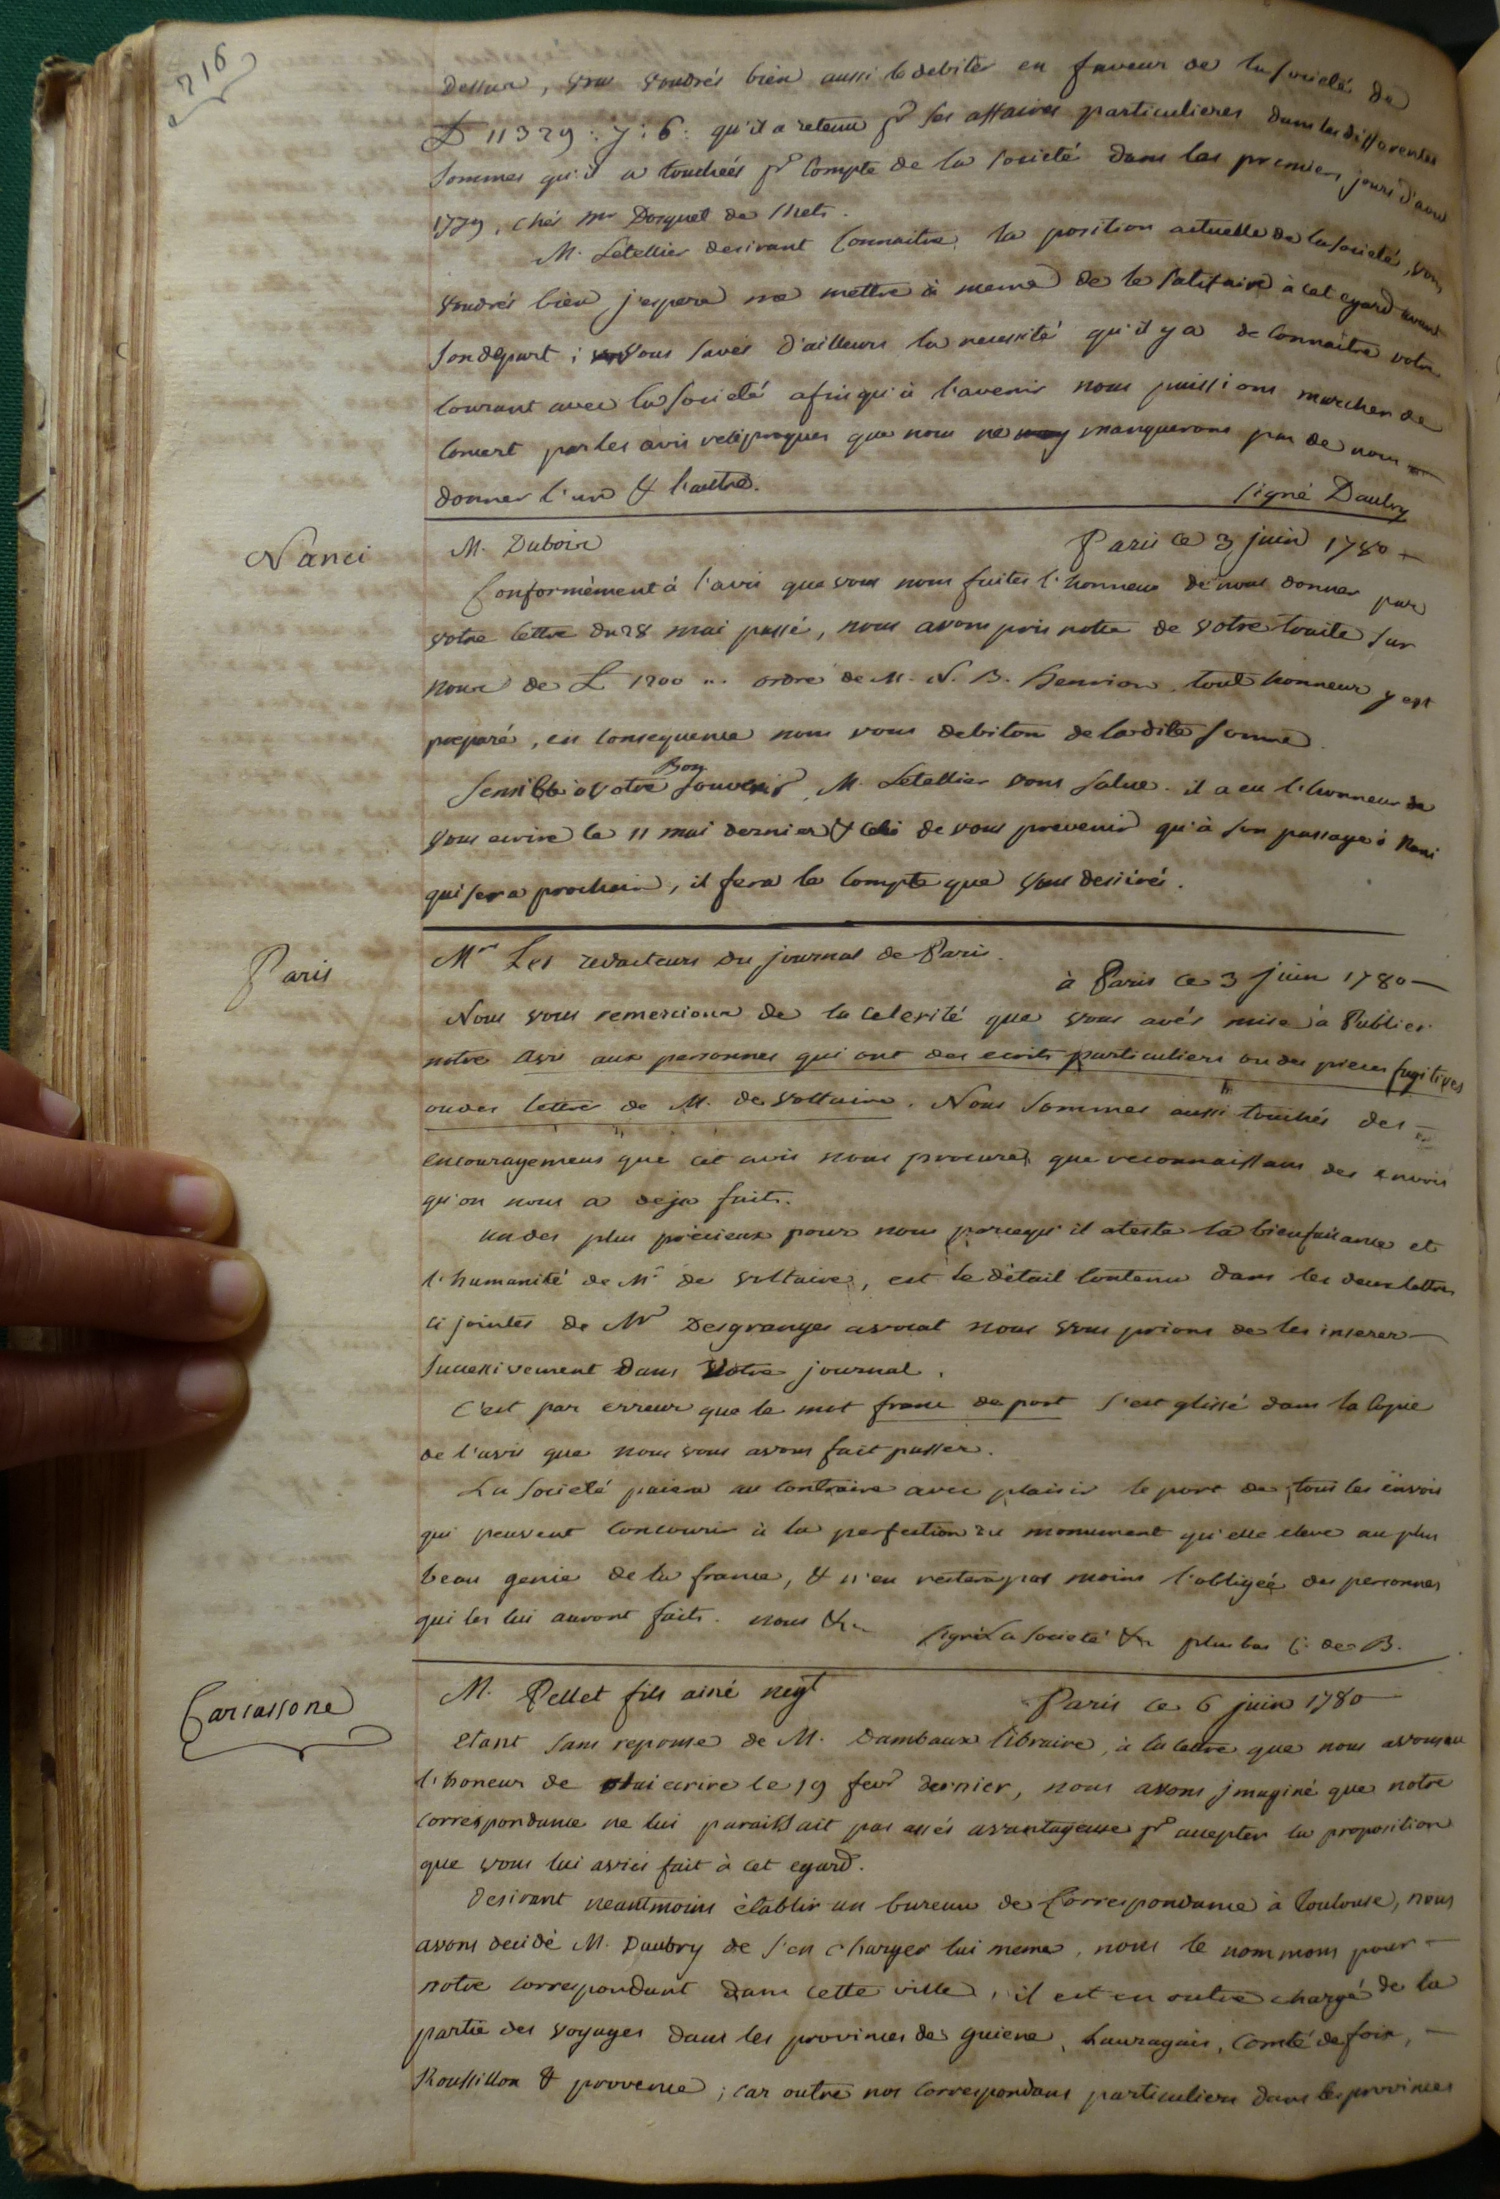 216
dessus, vous voudrés bien aussi le debiter en faveur de la societé de
₶ 11329 : 7 : 6 : qu'il a retenu pr ses affaires particulieres dans les differentes
sommes qu'il a touchées pr compte de la societé dans les premiers jours d'aout
1779, chés mr Dosquet de Metz.
M. Letellier desirant connaitre la position actuelle de la societé, vous
voudrés bien j'espere me mettre à meme de le satisfaire à cet egard avant
son depart ; vous savés d'ailleurs la necessité qu'il y a de connaitre votre
courant avec la societé afin qu'à l'avenir nous puissions marcher de
concert par les avis reciproques que nous ne manquerons pas de nous
donner l'un & l'autre.
signé Daubry
Nanci
M. Dubois
Paris ce 3 juin 1780
Conformément à l'avis que vous nous faites l'honneur de nous donner par
votre lettre du 28 mai passé, nous avons pris note de votre traite sur
nous de ₶ 1200 ,, ordre de M. N. B. Henrion. tout honneur y est
preparé, en consequence nous vous debitons de ladite somme.
Sensible à votre Bon souvenir, M. Letellier vous salue. il a eu l'honneur de
vous ecrire le 11 mai dernier & celui de vous prevenir qu'à son passage à Nanci
qui sera prochain, il fera le compte que vous desirés.
Paris
Mrs Les redacteurs du journal de Paris.
à Paris ce 3 juin 1780
Nous vous remercions de la celerité que vous avés mise à Publier
notre avis aux personnes qui ont des ecrits particuliers ou des pieces fugitives
ou des lettres de M. de Voltaire. Nous sommes aussi touchés des
encouragemens que cet avis nous procure, que reconnaissans des envois
qu'on nous a deja faits.
un des plus précieux pour nous parcequ'il ateste la bienfaisance et
l'humanité de Mr de Voltaire, est le détail contenu dans les deux lettres
ci jointes de Mr Desgranges avocat nous vous prions de les inserer
successivement dans votre journal.
C'est par erreur que le mot franc de port s'est glissé dans la copie
de l'avis que nous vous avons fait passer.
La societé paiera au contraire avec plaisir le port de tous les envois
qui peuvent concourir à la perfection du monument qu'elle eleve au plus
beau genie de la france, & n'en restera pas moins l'obligée des personnes
qui les lui auront faits. nous &c
signé La societé &c plus bas C. de B.
Carcassone
M. Pellet fils ainé negt
Paris ce 6 juin 1780
Etant sans reponse de M. Dambaux libraire, à la lettre que nous avons eu
l'honeur de lui ecrire le 19 fevr dernier, nous avons jmaginé que notre
correspondance ne lui paraissait pas assés avantageuse pr accepter la proposition
que vous lui aviés fait à cet egard.
Desirant neantmoins établir un bureau de Correspondance à Toulouse, nous
avons decidé M. Daubry de s'en charger lui meme, nous le nommons pour
notre correspondant dans cette ville, il est en outre chargé de la
partie des voyages dans les provinces de guiene, Lauragais, Comté de foix,
Roussillon & provence ; car outre nos correspondans particuliers dans les provinces